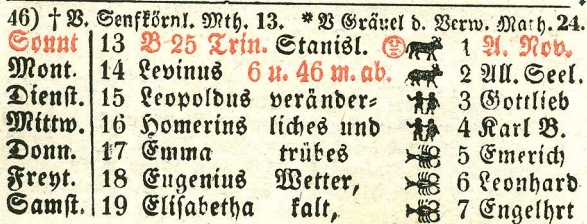 46) † V. Senfkörnl. Mth. 13. *V Gräuel d. Verw. Math. 24.
Sonnt 13 B 25 Trin. Stanisl. 1 A. Nov.
Mont. 14 Levinus 6 u. 46 m. ab. 2 All. Seel.
Dienst. 15 Leopoldus veränder= 3 Gottlieb
Mittw. 16 Homerins liches und 4 Karl B.
Donn. 17 Emma trübes 5 Emerich
Freyt. 18 Eugenius Wetter, 6 Leonhard
Samst. 19 Elisabetha kalt, 7 Engelhrt